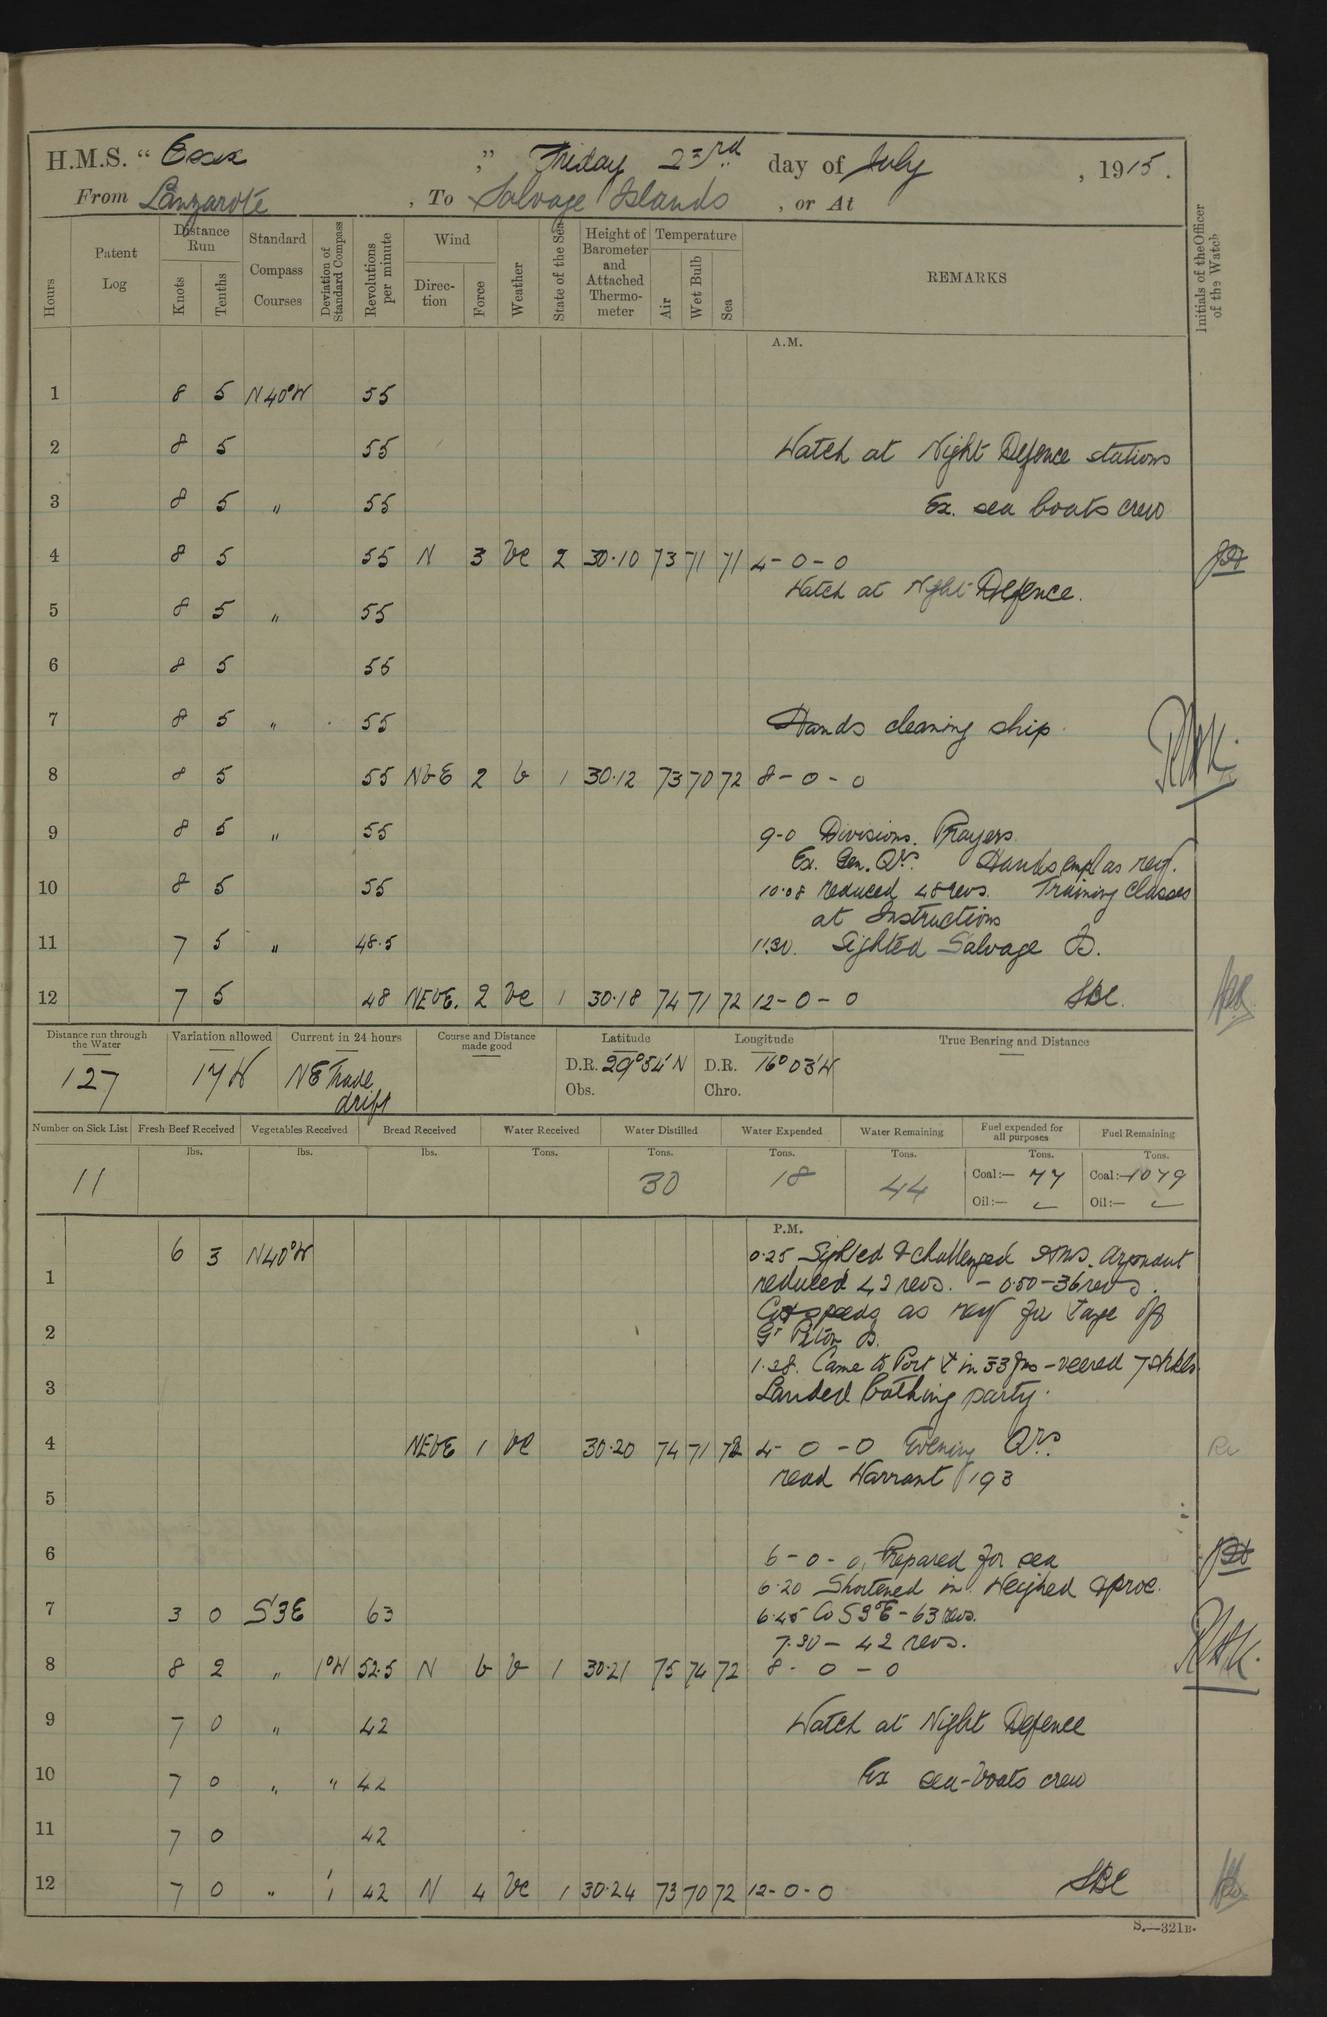 H.M.S. " Essex " Friday 23rd day of July , 1915.
From Lanzarote , To Salvage Islands , or At
Hours
Patent Log
Distance Run
Knots
Tenths
Standard Compass Courses
Deviation of Standard Compass
Revolutions per minute
Wind
Direction
Force
Weather
State of the Sea
Height of Barometer and Attached Thermometer
Temperature
Air
Wet Bulb
Sea
REMARKS
Initials of the Officer of the Watch
A.M.
1 8 5 N40°W 55
2 8 5 55 Watch at Night Defence stations
3 8 5 " 55 Ex. sea boats crew
4 8 5 55 N 3 bc 2 30·10 73 71 71 4-0-0
Watch at Night Defence.
5 8 5 " 55
6 8 5 55
7 8 5 " 55 Hands cleaning ship.
8 8 5 55 NbE 2 b 1 30·12 73 70 72 8-0-0
RHK.
9 8 5 " 55 9-0 Divisions. Prayers
Ex. Gen. Qrs. Hands empl as req.
10 8 5 55 10·08 reduced 48 revs. Training Classes
at Instructions
11 7 5 " 48·5 11.30. Sighted Salvage Is.
12 7 5 48 NEbE. 2 bc 1 30·18 74 71 72 12-0-0 SBC.
Distance run through the Water
127
Variation allowed
17W
Current in 24 hours
NE Trade drift
Course and Distance made good
Latitude
D.R. 29°54'N
Obs.
Longitude
D.R. 16°03'W
Chro.
True Bearing and Distance
Number on Sick List
11
Fresh Beef Received
lbs.
Vegetables Received
lbs.
Bread Received
lbs.
Water Received
Tons.
Water Distilled
Tons.
30
Water Expended
Tons.
18
Water Remaining
Tons.
44
Fuel expended for all purposes
Tons.
Coal:— 77
Oil:—
Fuel Remaining
Tons.
Coal:— 1079
Oil:—
P.M.
1 6 3 N40°W 0·25 Sighted & challenged HMS. Argonaut
reduced 42 revs. - 0.50-36 revs.
2 Co & speeds as req for
Gt Piton Is.
3 1·28. Came to Port in 33 fms - veered 7 shkls.
Landed bathing party.
4 NEbE 1 bc 30·20 74 71 72 4-0-0 Evening Qrs.
read Warrant 193
5
6 6-0-0. Prepared for sea
6·20 Shortened in. Weighed & proc.
7 3 0 S3E 63 6·45 Co S3°E - 63 revs.
7.30 - 42 revs.
8 8 2 " 1°W 52·5 N b 1 30·21 75 74 72 8-0-0
RHK.
9 7 0 " 42 Watch at Night Defence
10 7 0 " " 42 Ex sea-boats crew
11 7 0 42
12 7 0 " 1 42 N 4 bc 1 30·24 73 70 72 12-0-0 SBC
S.—321B.